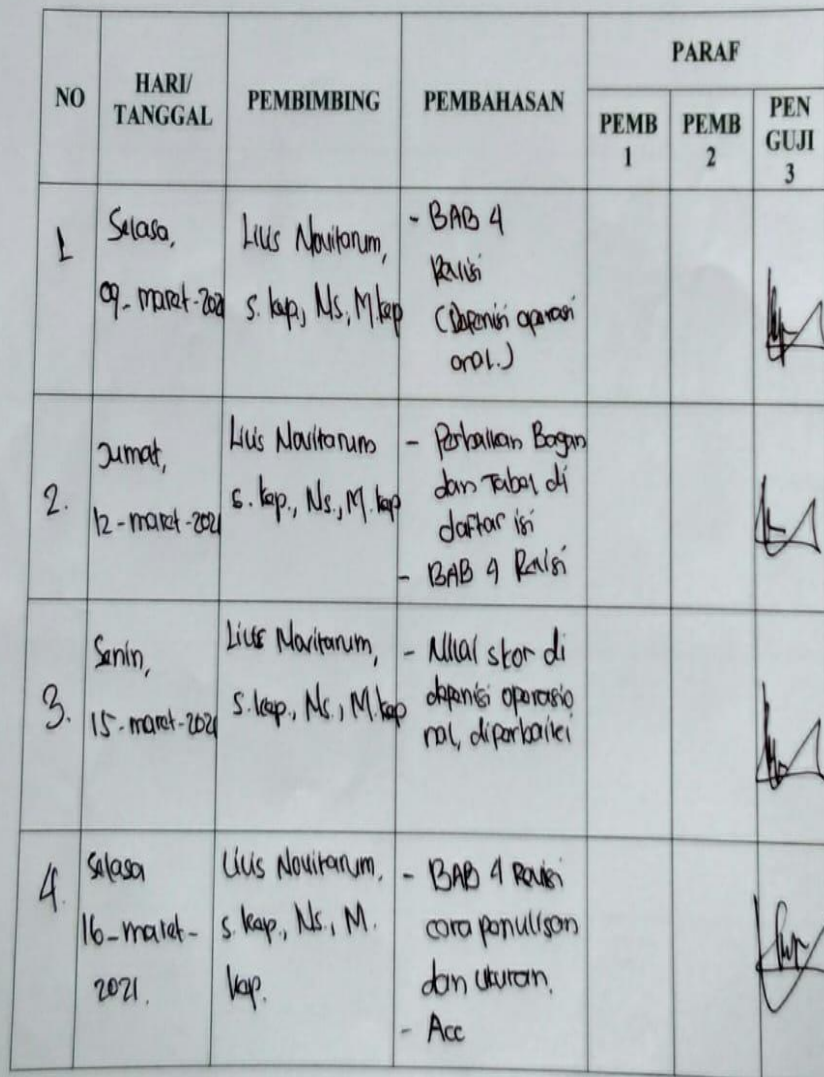 NO
HARI/
TANGGAL
PEMBIMBING
PEMBAHASAN
PARAF
PEMB
1
PEMB
2
PEN
GUJI
3
1
Selasa,
09-maret-2021
Lilis Novitarum,
S.kep, Ns, M.kep
- BAB 4
Revisi
(Depenisi operasi
onal.)
2.
Jumat,
12-maret-2021
Lilis Novitarum
S.kep., Ns., M.kep
- Perbaikan Bagan
dan Tabel di
daftar isi
- BAB 4 Revisi
3.
Senin,
15-maret-2021
Lilis Novitarum,
S.kep., Ns., M.kep
- Nilai skor di
depenisi operasio
nal, diperbaiki
4.
Selasa
16-maret-
2021.
Lilis Novitarum,
S.kep., Ns., M.
kep.
- BAB 4 Revisi
cara penulisan
dan ukuran.
- Acc